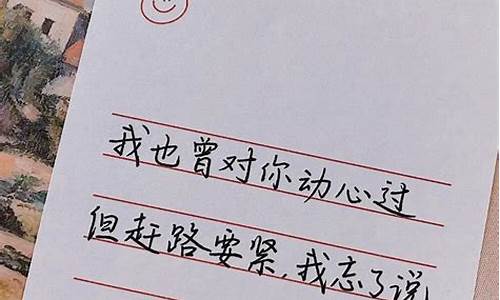 我也曾对你动心过
但赶路要紧，我忘了说